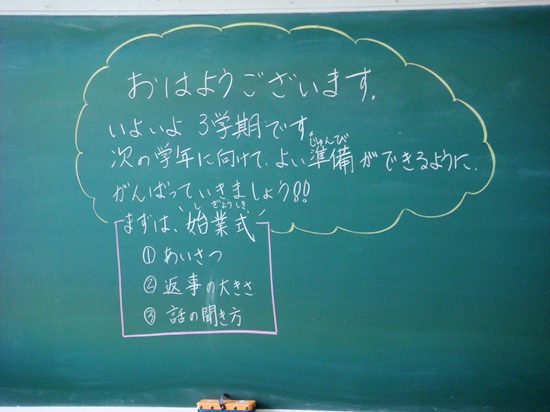 おはようございます。
いよいよ 3学期です。
じゅんび
次の学年に向けて、よい準備ができるように、
がんばっていきましょう!!
しぎょうしき
まずは、始業式
① あいさつ
② 返事の大きさ
③ 話の聞き方